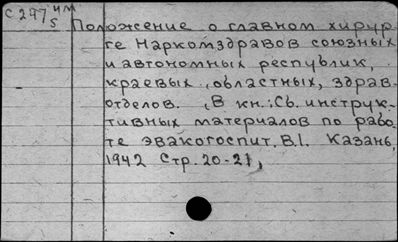 С 297 ЧМ
5
Положение о главном хирур-
ге Наркомздравов союзных
и автономных республик,
краевых, областных, здрав-
отделов. В кн.: Сб. инструк-
тивных материалов по рабо-
те эвакогоспит. В.1. Казань,
1942 Стр. 20-21,